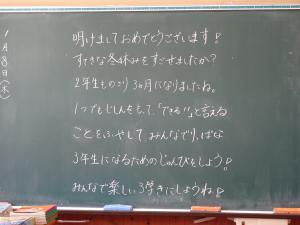 明けましておめでとうございます!
すてきな冬休みをすごせましたか?
2年生ものこり3ヵ月になりましたね。
1つでもじしんをもって、「できる!!」と言える
ことをふやして、みんなでりっぱな
3年生になるためのじゅんびをしよう!
みんなで楽しい3学きにしようね!
1月8日(木)